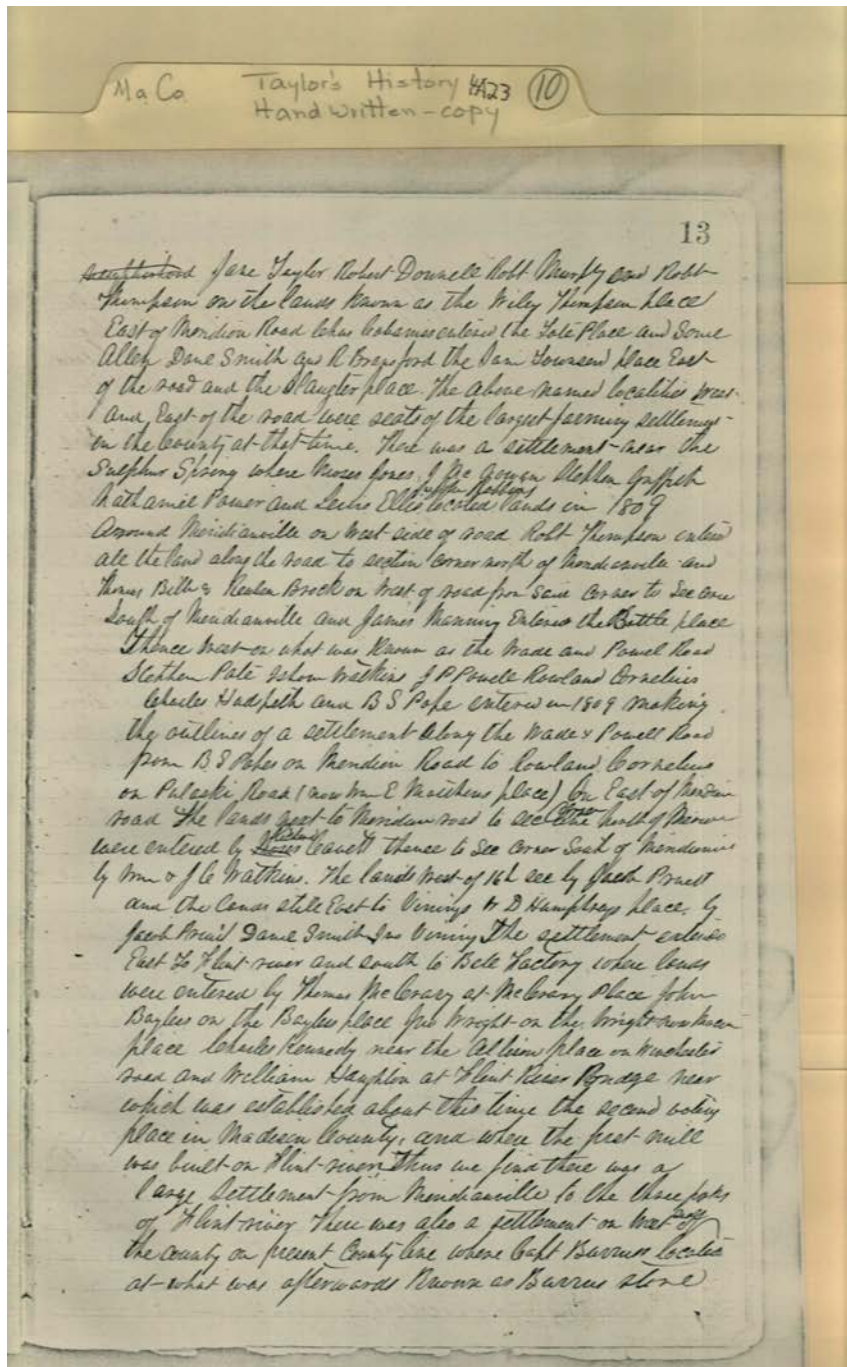 Ma Co Taylor's History 4A23 10
Handwritten-copy
13
Jane Taylor Robert Donnell Robt Murphy and Robt
Thompson on the lands known as the Wiley Thompson place
East of Meridian Road Chas Cabaniss entered the Tate Place and Some
Allen Dane Smith R Bransford the Sam Townsend place East
of the road and the Slaugter place. The above named localities West
and East of the road were seats of the largest farming settlements
in the County at that time. There was a settlement near the
Sulphur Spring where Moses Jones, J McGowen Stephen Griffeth
Nathaniel Power and Lewis Ellis located lands in 1809
Around Meridianville on West side of road Robt Thompson entered
all the land along the road to section corner north of Meridianville and
Thomas Bibb & Reuben Brock on West of road from said corner to Sec
South of Meridianville and James Manning Entered the Battle place
Thence West on what was known as the Wade and Powel Road
Stephen Pate Watkins J P Powell Rowland Cornelius
Charles Hudpeth and B S Pope entered in 1809 making
the outlines of a settlement along the Wade & Powell Road
from B.S Popes on Meridian Road to Rowland Cornelius
on Pulaski Road (now Wm E Matthews place) On East of Meridian
road the lands next to Meridian road to sec Corner North of
were entered by Leavett thence to Sec Corner South of
by Wm & J C Watkins. The lands West of 16h sec by Jacob Pruett
and the lands still East to Vinings & D Humphreys place, by
Jacob Pruit Dane Smith Jno Vining The settlement extended
East to Flint river and south to Bell Factory where lands
were entered by Thomas McCrary at McCrary Place John
Bayless on the Bayless place Jno Wright on the Wright now
place Charles Kennedy near the Allison place on Winchester
road and William Haughton at Flint River Bridge near
which was established about this time the second voting
place in Madison County, and where the first mill
was built on Flint river Thus we find there was a
large Settlement from Meridianville to the three forks
of Flint river There was also a settlement on West of
the county on present County line where Capt Burrus located
at what was afterwards Known as Burrus store